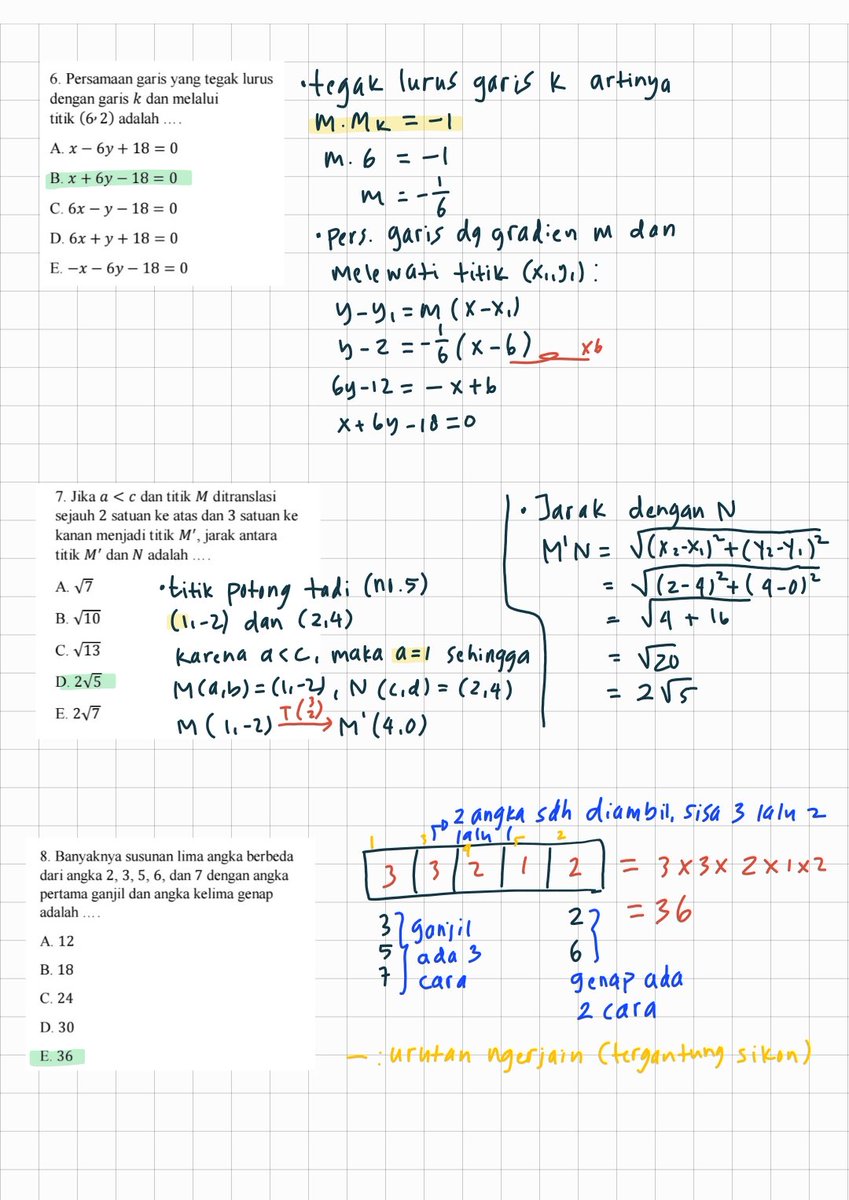 6. Persamaan garis yang tegak lurus
dengan garis k dan melalui
titik (6,2) adalah ....
A. x − 6y + 18 = 0
B. x + 6y − 18 = 0
C. 6x − y − 18 = 0
D. 6x + y + 18 = 0
E. −x − 6y − 18 = 0
• tegak lurus garis k artinya
m.mₖ = −1
m. 6 = −1
m = −1/6
• pers. garis dg gradien m dan
melewati titik (x₁,y₁) :
y−y₁ = m (x−x₁)
y−2 = −1/6 (x−6) x6
6y−12 = −x+6
x+6y−18=0
7. Jika a < c dan titik M ditranslasi
sejauh 2 satuan ke atas dan 3 satuan ke
kanan menjadi titik M′, jarak antara
titik M′ dan N adalah ....
A. √7
B. √10
C. √13
D. 2√5
E. 2√7
• titik potong tadi (n1.5)
(1,−2) dan (2,4)
karena a<c, maka a=1 sehingga
M(a,b) = (1,−2), N (c,d) = (2,4)
M (1,−2) T(3 2) → M'(4,0)
• Jarak dengan N
M'N = √(x₂−x₁)²+(y₂−y₁)²
= √(2−4)²+(4−0)²
= √4 + 16
= √20
= 2√5
8. Banyaknya susunan lima angka berbeda
dari angka 2, 3, 5, 6, dan 7 dengan angka
pertama ganjil dan angka kelima genap
adalah ....
A. 12
B. 18
C. 24
D. 30
E. 36
2 angka sdh diambil, sisa 3 lalu 2
lalu 1
1 3 4 5 2
3 3 2 1 2 = 3×3×2×1×2
= 36
3
5
7
ganjil
ada 3
cara
2
6
genap ada
2 cara
— : urutan ngerjain (tergantung sikon)